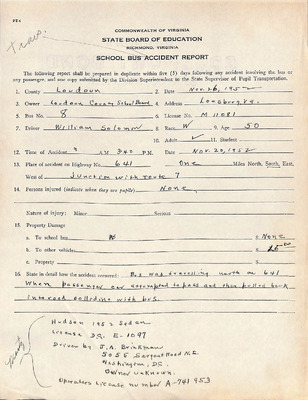 COMMONWEALTH OF VIRGINIA
STATE BOARD OF EDUCATION
RICHMOND, VIRGINIA
SCHOOL BUS ACCIDENT REPORT
The following report shall be prepared in duplicate within five (5) days following any accident involving the bus or
any passenger, and one copy submitted by the Division Superintendent to the State Supervisor of Pupil Transportation.
1. County Loudoun 2. Date Nov. 26, 1952
3. Owner Loudoun County School Board 4. Address Leesburg, Va.
5. Bus No. 8 6. License No. M 11081
7. Driver William Solomon 8. Race W 9. Age 50
10. Adult ✓ 11. Student
12. Time of Accident: AM 3:40 P.M. Date Nov. 20, 1952
13. Place of accident on Highway No. 641 One Miles North, South, East,
West of Junction with route 7
14. Persons injured (indicate when they are pupils) None
Nature of injury: Minor Serious
15. Property Damage
a. To school bus $ None
b. To other vehicle $ 25.00
c. Property $
16. State in detail how the accident occurred: Bus was travelling north on 641
When passenger car attempted to pass and then pulled back
into road colliding with bus.
Hudson 1952 Sedan
License D.C. E-1097
Driven by J.A. Brinkman
5055 Sargent Road N.E.
Washington, D.C.
Owner Unknown.
Operators License number A-741953